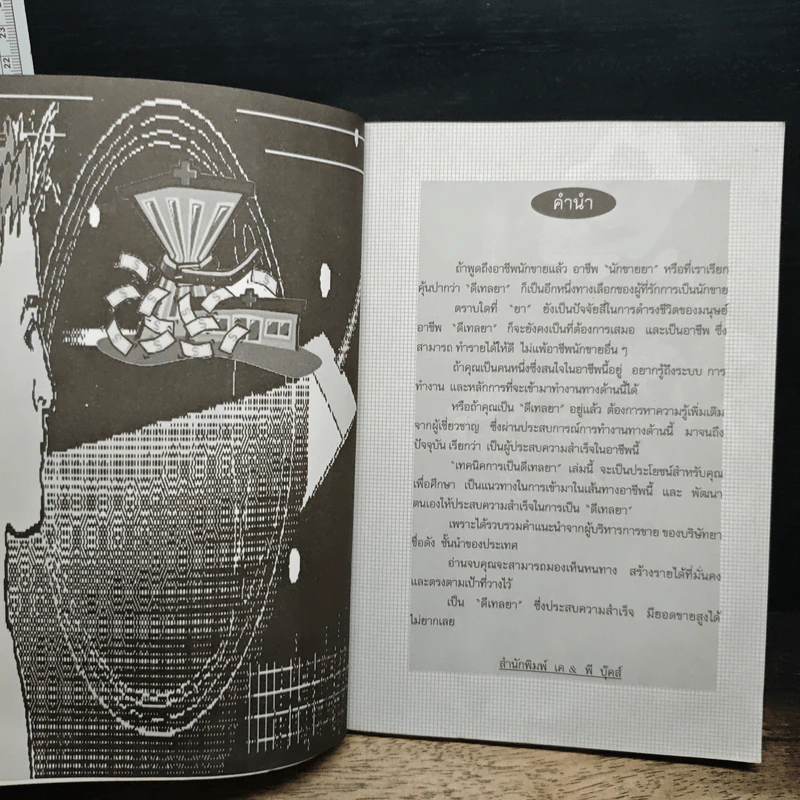 22 23
คำนำ
ถ้าพูดถึงอาชีพนักขายแล้ว อาชีพ "นักขายยา" หรือที่เราเรียก
คุ้นปากว่า "ดีเทลยา" ก็เป็นอีกหนึ่งทางเลือกของผู้ที่รักการเป็นนักขาย
ตราบใดที่ "ยา" ยังเป็นปัจจัยสี่ในการดำรงชีวิตของมนุษย์
อาชีพ "ดีเทลยา" ก็จะยังคงเป็นที่ต้องการเสมอ และเป็นอาชีพ ซึ่ง
สามารถ ทำรายได้ให้ดี ไม่แพ้อาชีพนักขายอื่น ๆ
ถ้าคุณเป็นคนหนึ่งซึ่งสนใจในอาชีพนี้อยู่ อยากรู้ถึงระบบ การ
ทำงาน และหลักการที่จะเข้ามาทำงานทางด้านนี้ได้
หรือถ้าคุณเป็น "ดีเทลยา" อยู่แล้ว ต้องการหาความรู้เพิ่มเติม
จากผู้เชี่ยวชาญ ซึ่งผ่านประสบการณ์การทำงานทางด้านนี้ มาจนถึง
ปัจจุบัน เรียกว่า เป็นผู้ประสบความสำเร็จในอาชีพนี้
"เทคนิคการเป็นดีเทลยา" เล่มนี้ จะเป็นประโยชน์สำหรับคุณ
เพื่อศึกษา เป็นแนวทางในการเข้ามาในเส้นทางอาชีพนี้ และ พัฒนา
ตนเองให้ประสบความสำเร็จในการเป็น "ดีเทลยา"
เพราะได้รวบรวมคำแนะนำจากผู้บริหารการขาย ของบริษัทยา
ชื่อดัง ชั้นนำของประเทศ
อ่านจบคุณจะสามารถมองเห็นหนทาง สร้างรายได้ที่มั่นคง
และตรงตามเป้าที่วางไว้
เป็น "ดีเทลยา" ซึ่งประสบความสำเร็จ มียอดขายสูงได้
ไม่ยากเลย
สำนักพิมพ์ เค & พี บุ๊คส์